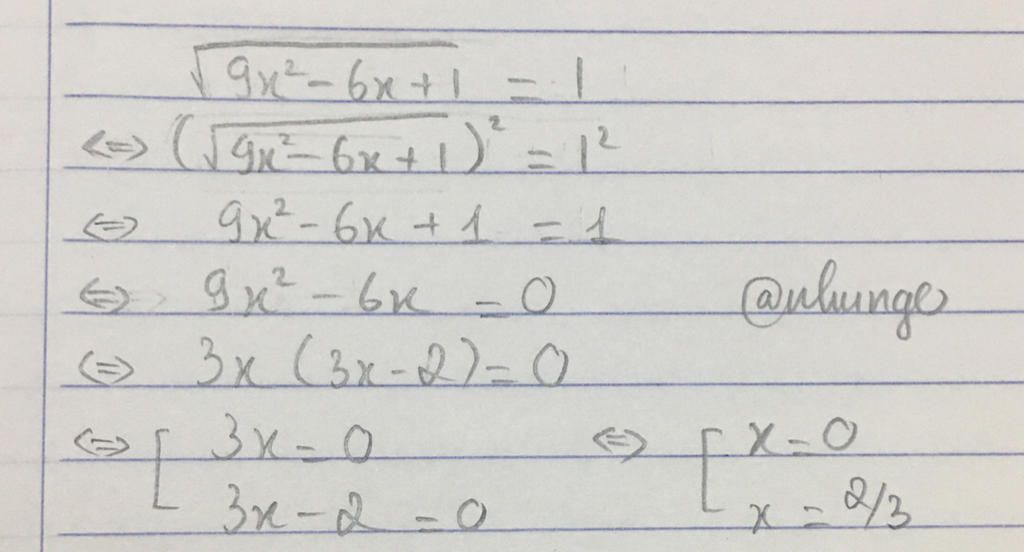 √(9x² - 6x + 1) = 1
⇔ (√(9x² - 6x + 1))² = 1²
⇔ 9x² - 6x + 1 = 1
⇔ 9x² - 6x = 0
@nhunge
⇔ 3x (3x - 2) = 0
⇔ [ 3x = 0 ⇔ [ x = 0
3x - 2 = 0 x = 2/3